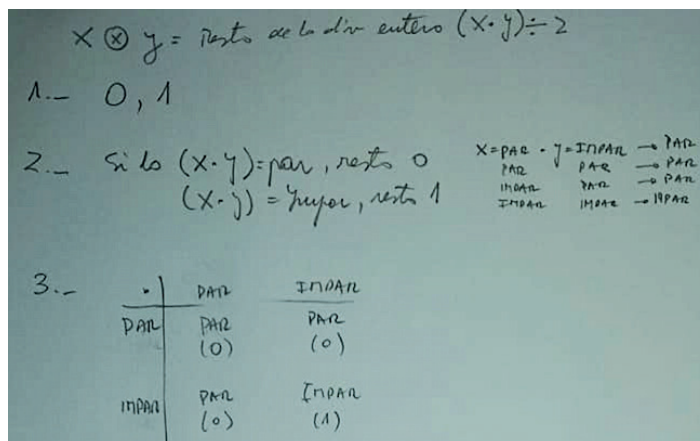 X ⊗ y = resto de la div entero (X·y)÷2
1.- 0, 1
2.- Si lo (X·y)=par, resto 0
(X·y) = Impar, resto 1
X=PAR · y=IMPAR → PAR
PAR PAR → PAR
IMPAR PAR → PAR
IMPAR IMPAR → IMPAR
3.-
· PAR IMPAR
PAR PAR PAR
(0) (0)
IMPAR PAR IMPAR
(0) (1)